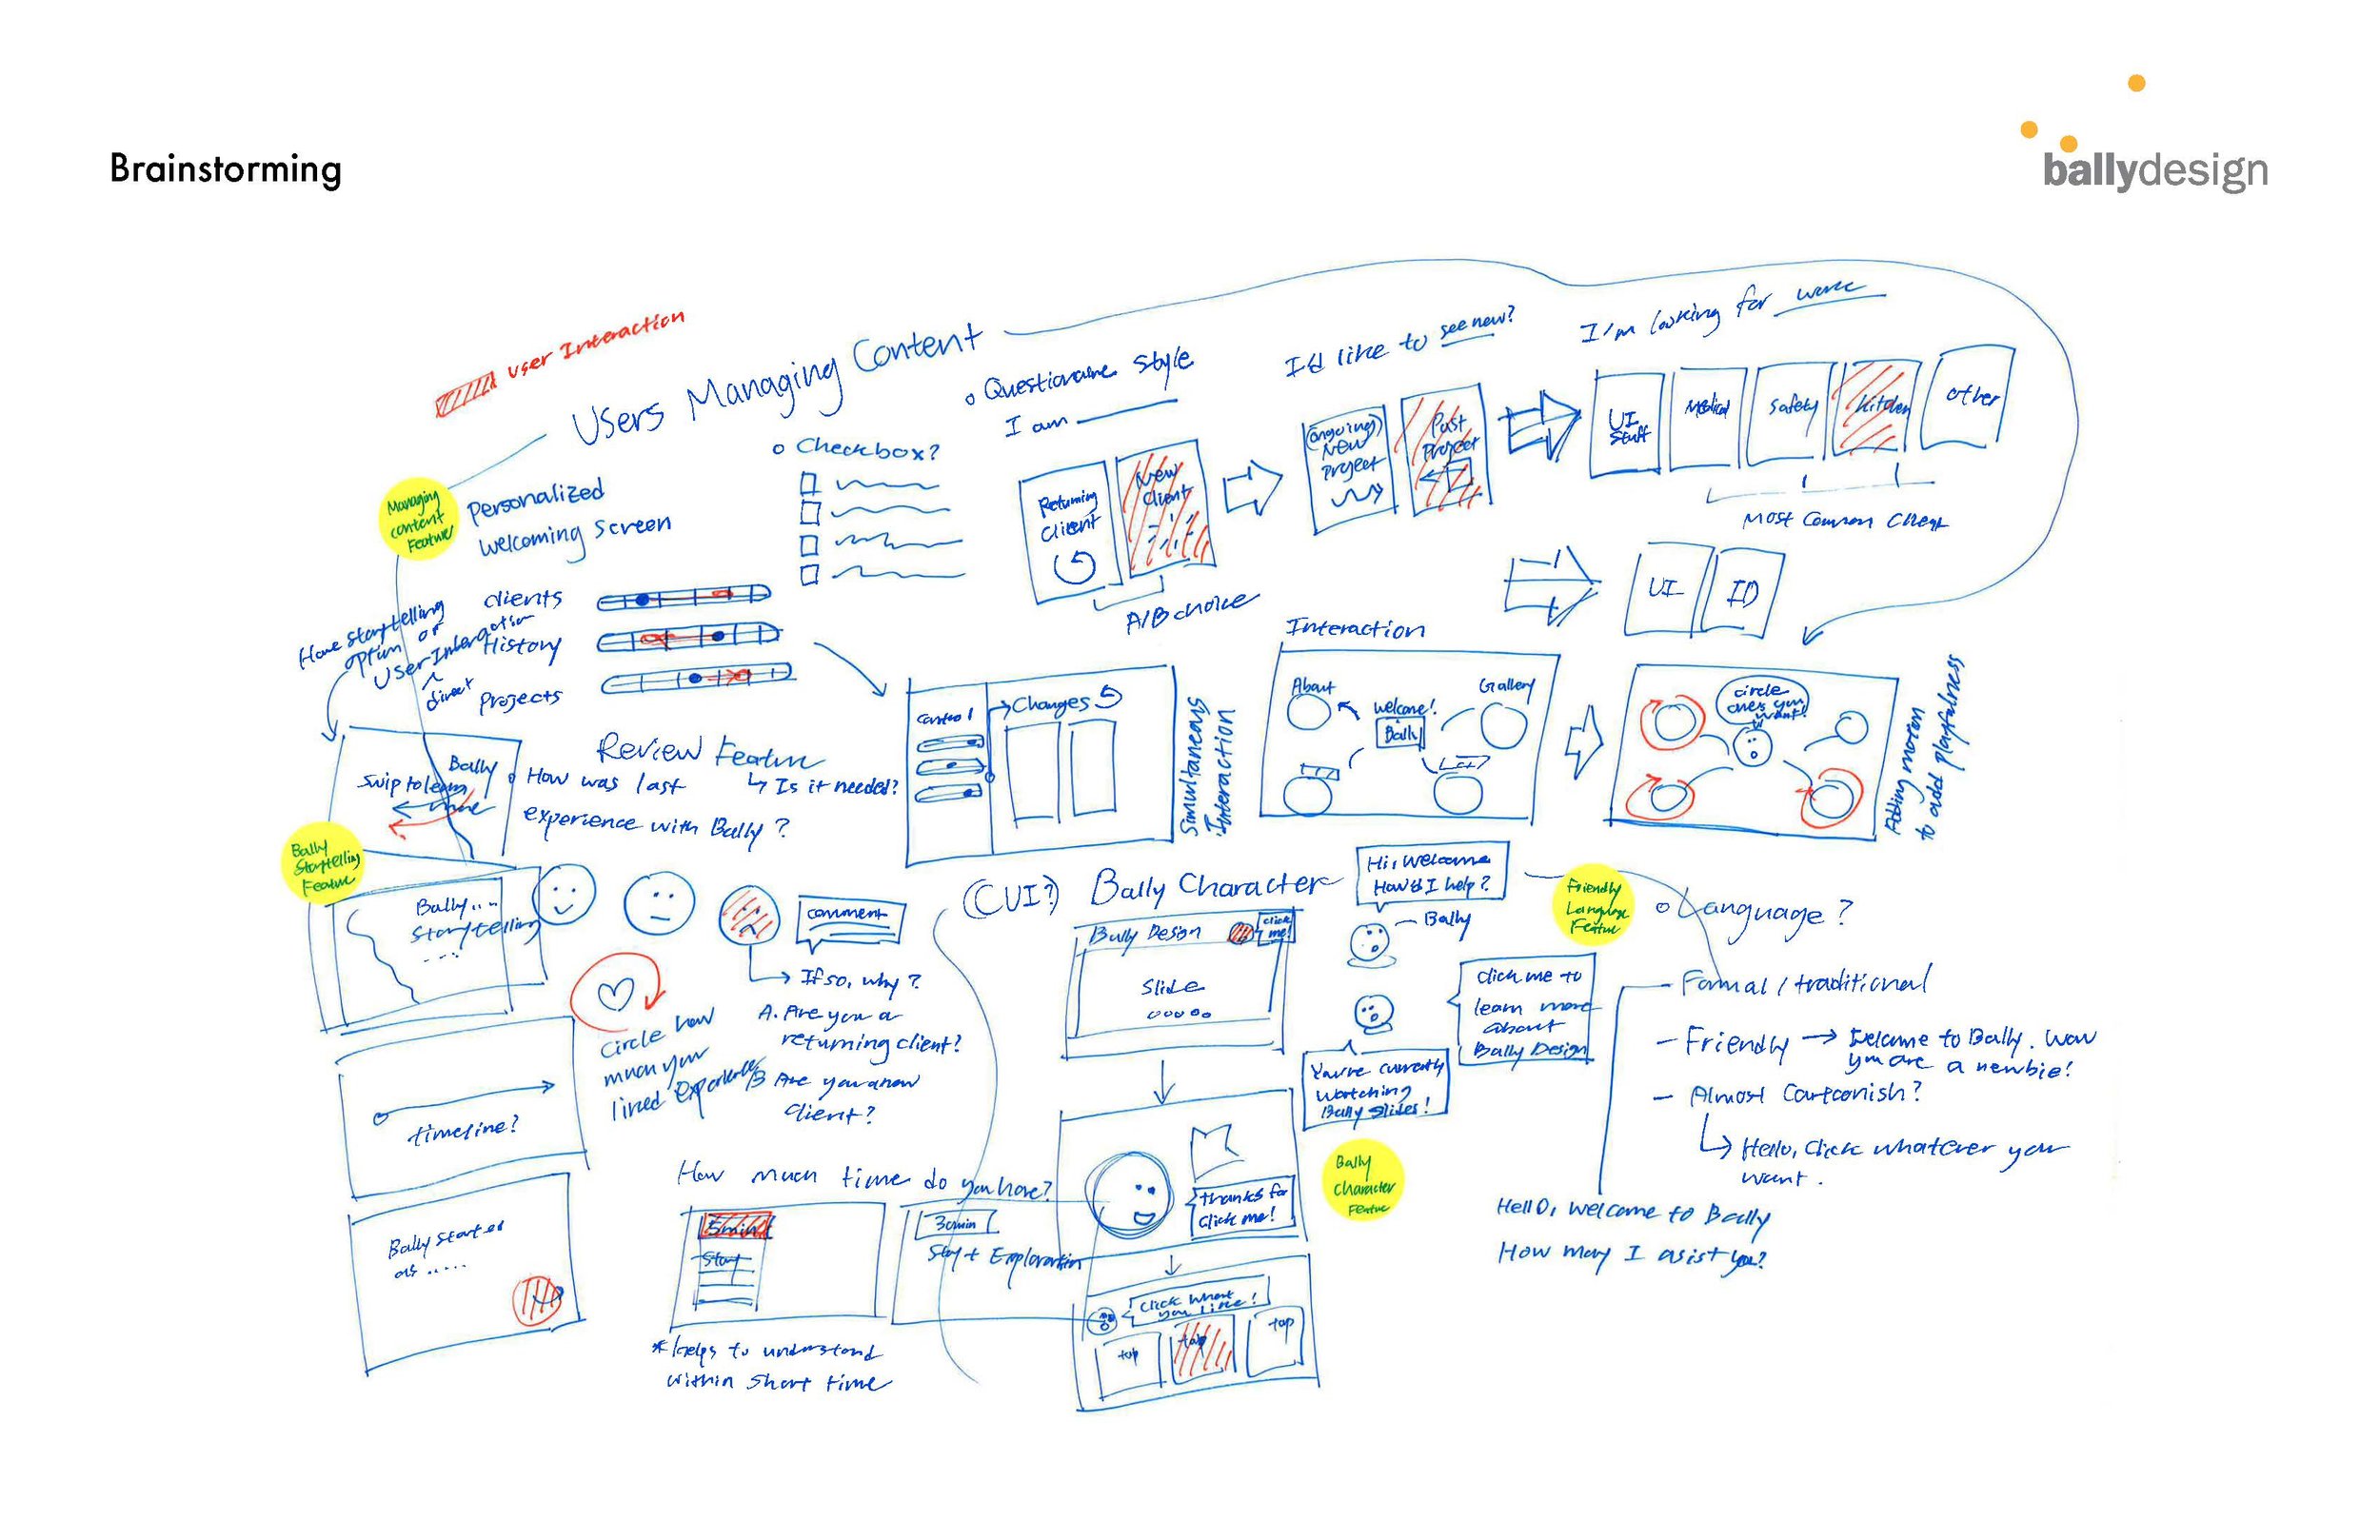 Brainstorming
ballydesign
user Interaction
Users Managing Content
Managing
content
Feature
Personalized
welcoming screen
o Checkbox?
o Questionaire style
I am
Returning
client
New
client
A/B choice
I'd like to see new?
(ongoing)
New
project
Past
Project
I'm looking for work
UI
Stuff
Medical
Safety
kitchen
other
Most Common Client
UI
ID
clients
History
projects
Have storytelling
option or
User Interaction
direct
Control
Changes
Simultaneous
Interaction
Interaction
About
Gallery
welcome!
Bally
circle
ones you
want!
Adding motion
to add playfulness
Bally
Swip to learn
more
Review Feature
Is it needed?
How was last
experience with Bally?
Bally
Storytelling
Feature
Bally...
storytelling
....
comment
If so, why?
A. Are you a
returning client?
B Are you a new
client?
Circle how
much you
liked experience
timeline?
Bally started
as .....
How much time do you have?
5min
Story
30min
Start Exploration
*helps to understand
within short time
(CUI?) Bally Character
Bally Design
click
me!
Slide
Thanks for
click me!
click what
you like!
tap
tap
tap
Hi, welcome
How'd I help?
Bally
click me to
learn more
about
Bally Design
You're currently
watching
Bally slides!
Bally
Character
Feature
Friendly
Language
Feature
o Language?
- Formal / traditional
- Friendly → Welcome to Bally. Wow
you are a newbie!
- Almost Cartoonish?
Hello, Click whatever you
want.
Hello, welcome to Bally
How may I asist you?